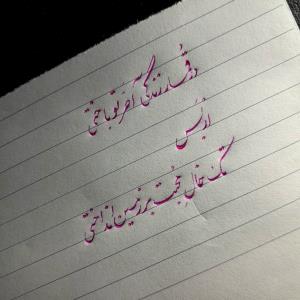 در قمار زندگی آخر تو باختی
از بس
تک خال محبت بر زمین انداختی